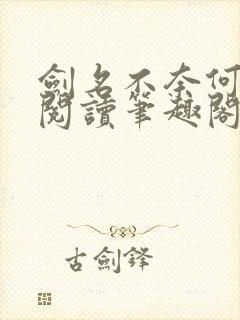 劍名不奈何
閱讀筆趣閣
古劍鋒